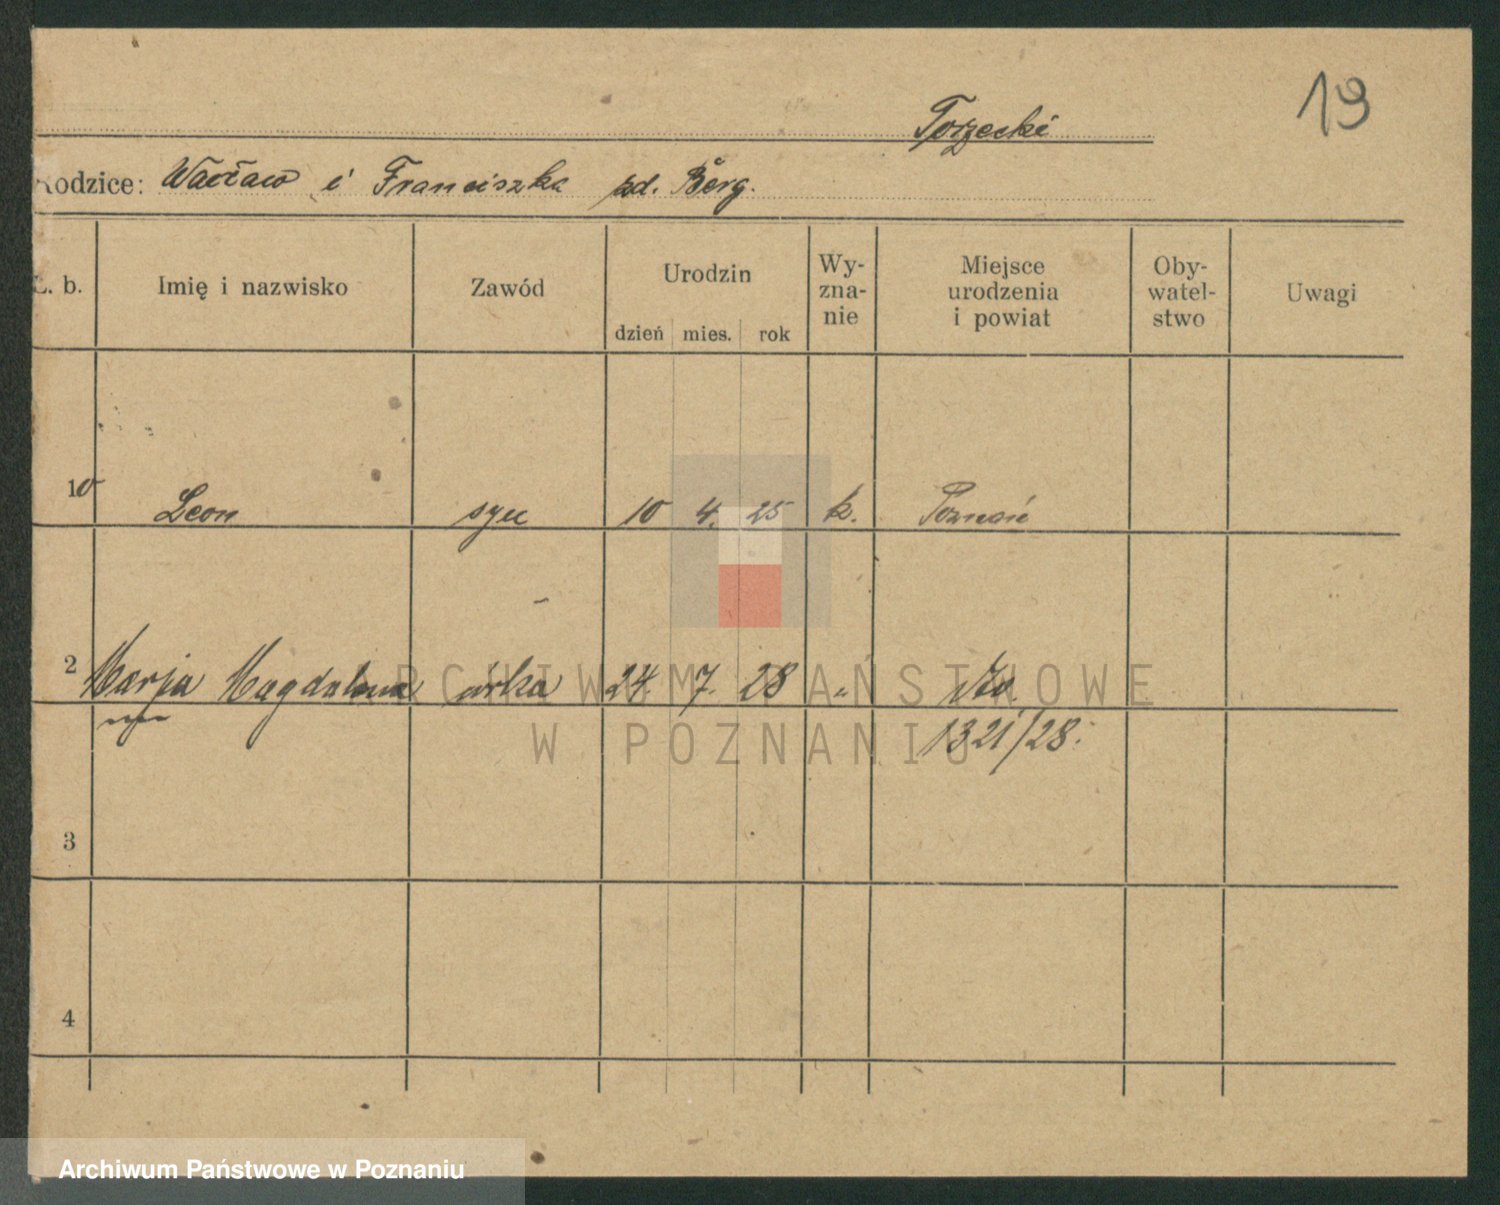 19
Torzecki
Rodzice: Wacław i Franciszka zd. Berg.
L. b. Imię i nazwisko Zawód Urodzin Wy-zna-nie Miejsce urodzenia i powiat Oby-watel-stwo Uwagi
dzień mies. rok
10 Leon syn 10 4. 25 k. Poznań
2 Marja Magdalena córka 24. 7. 28 „ dto.
1321/28.
3
4
ARCHIWUM PAŃSTWOWE
W POZNANIU
Archiwum Państwowe w Poznaniu